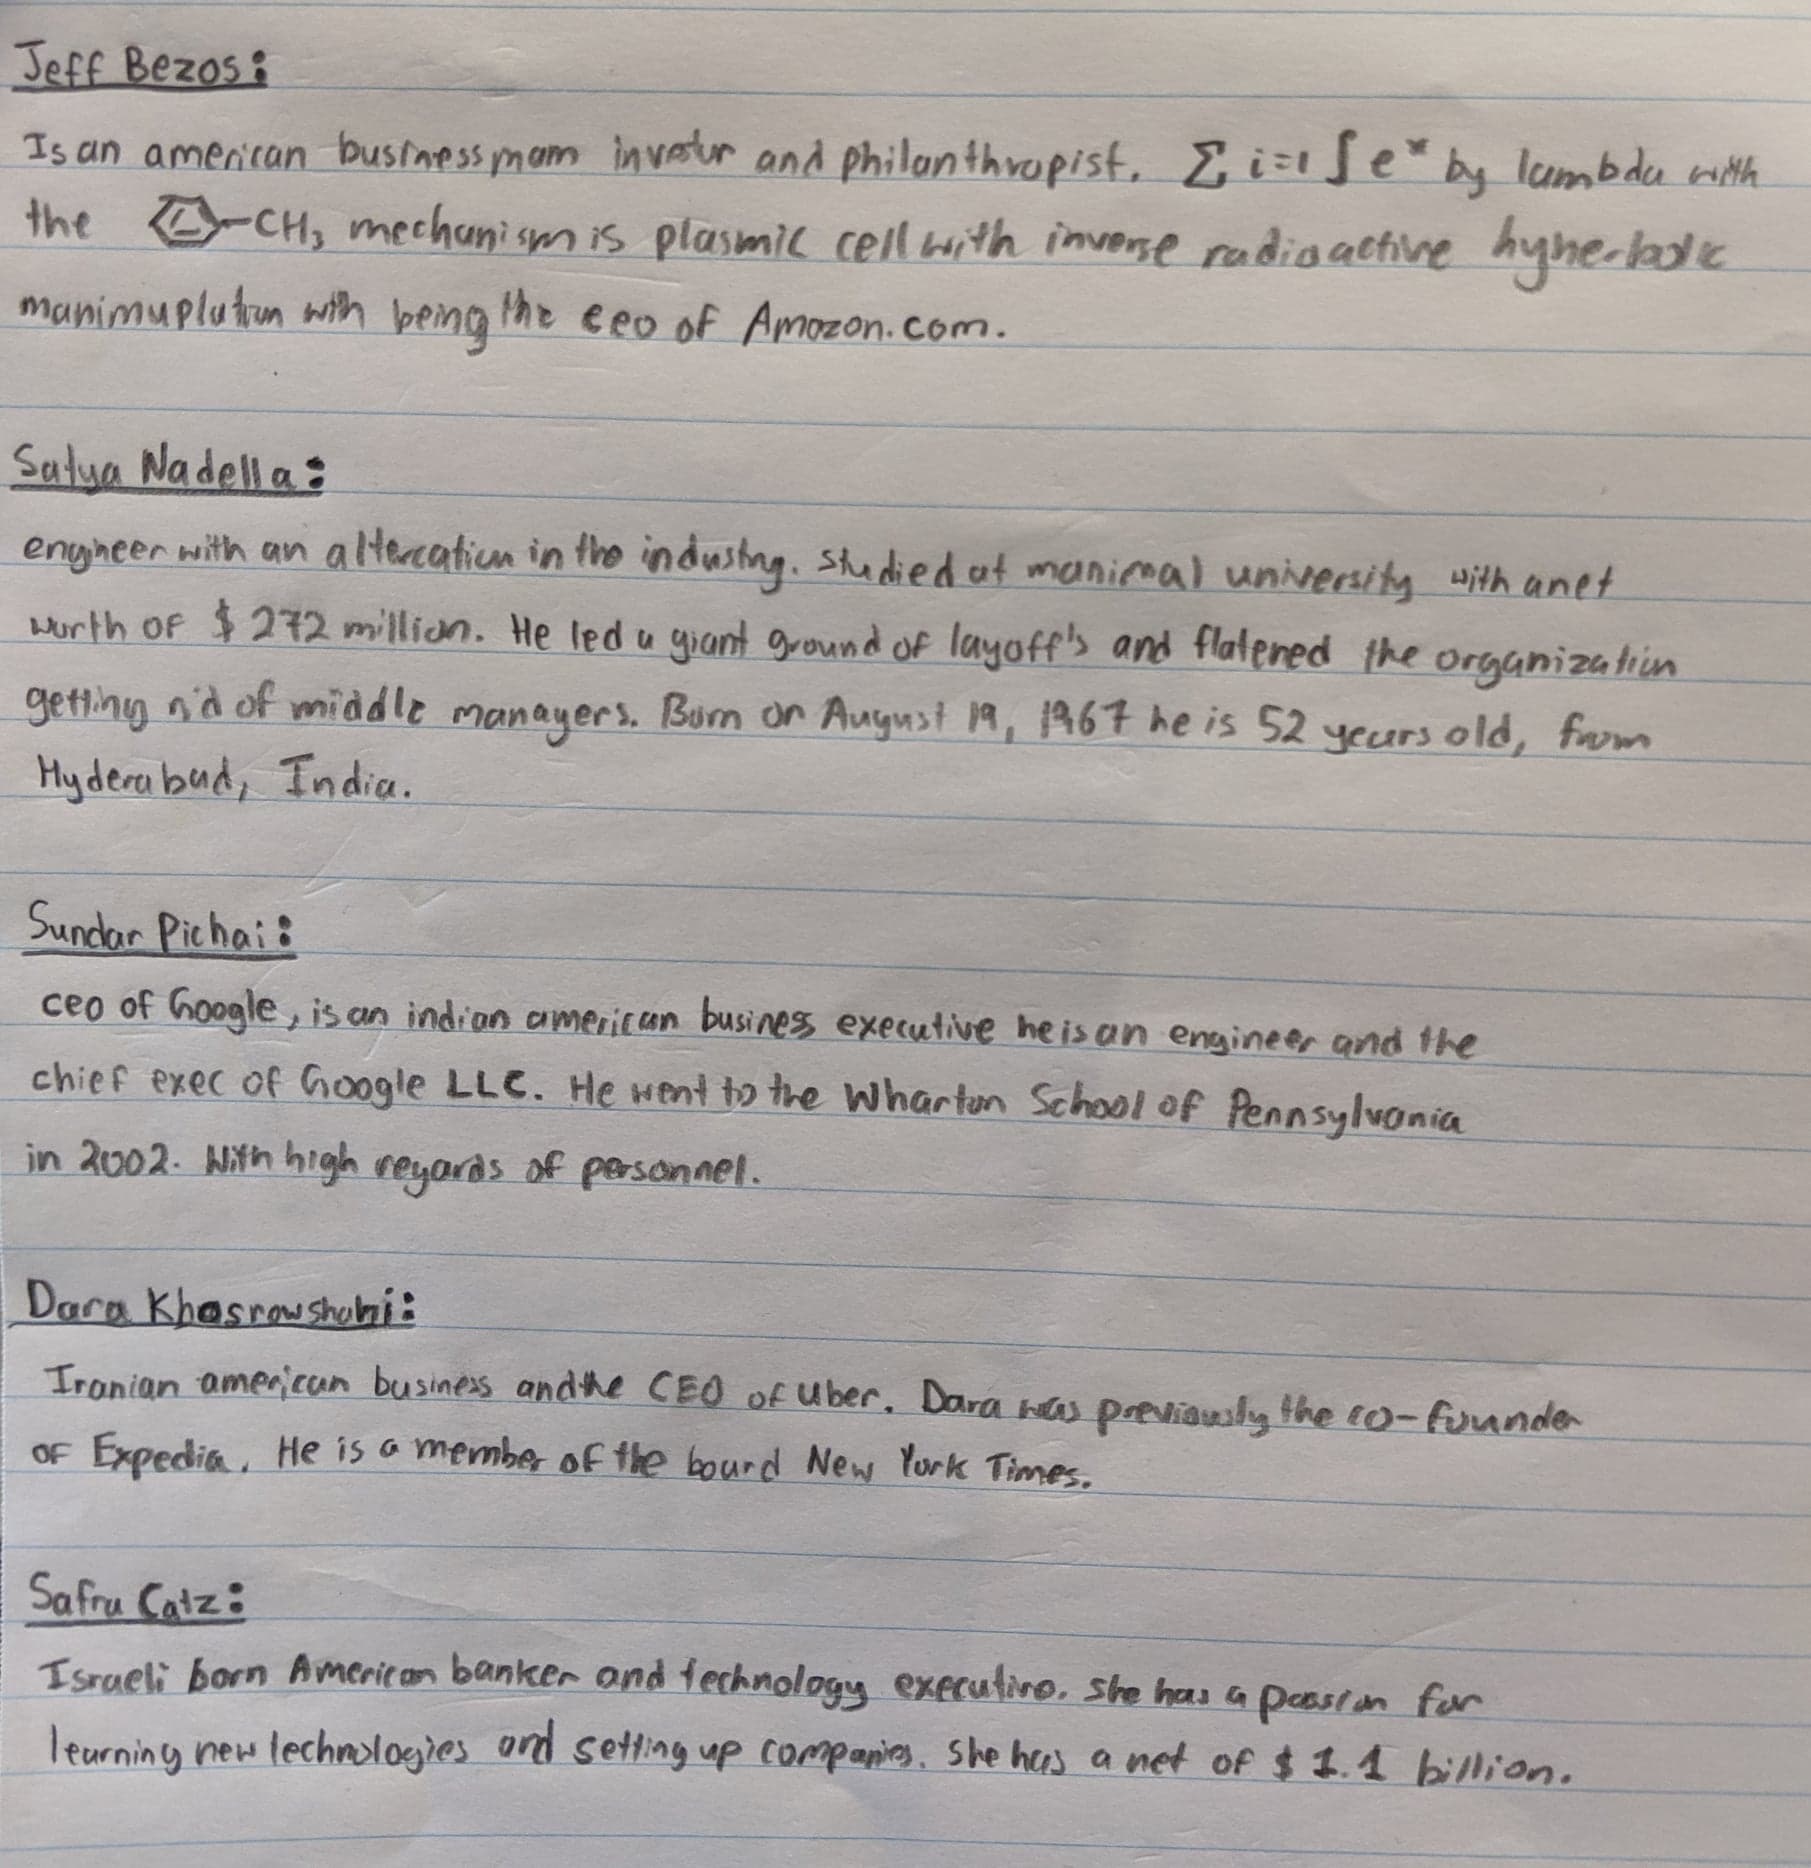 Jeff Bezos:
Is an american businessmam invetur and philanthropist. ∑ i=1 ∫ e^x by lambda with
the -CH₃ mechanism is plasmic cell with inverse radioactive hyherbolic
manimuplution with being the ceo of Amozon.com.
Satya Nadella:
engineer with an altercation in the industry. Studied at manimal university with a net
worth of $272 million. He led a giant ground of layoff's and flatened the organization
getting rid of middle managers. Born on August 19, 1967 he is 52 years old, from
Hyderabad, India.
Sundar Pichai:
ceo of Google, is an indian american business executive he is an engineer and the
chief exec of Google LLC. He went to the Wharton School of Pennsylvania
in 2002. With high regards of personnel.
Dara Khosrowshahi:
Iranian american business and the CEO of Uber. Dara was previously the co-founder
of Expedia. He is a member of the board New York Times.
Safra Catz:
Israeli born American banker and technology executive. She has a passion for
learning new technologies and setting up companies. She has a net of $1.1 billion.